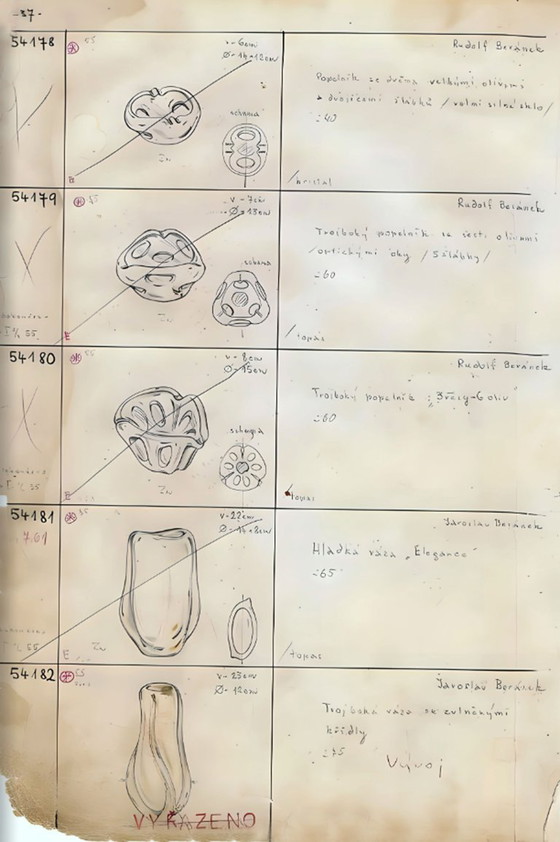 -37-
54178
55
v-6cm
Ø-14×12cm
schema
Rudolf Beránek
Popelník se dvěma velkými olivami
a dvojicemi šlábků /velmi silné sklo/
:40
/kristal
54179
55
v-7cm
Ø-13cm
schema
Rudolf Beránek
Trojboký popelník se šesti olivami
/optickými oky /3šlábky/
:60
/topas
I.% 55
E
54180
55
v-8cm
Ø-15cm
schema
Rudolf Beránek
Trojboký popelník : 3řezy-6 oliv"
:60
topas
E
54181
55
7,61
v-22cm
Ø-14×8cm
Jaroslav Beránek
Hladká váza „Elegance"
:65
/topas
E
54182
55
v-23cm
Ø-12cm
Jaroslav Beránek
Trojboká váza se zvlněnými
křídly
:75
Vývoj
VYŘAZENO